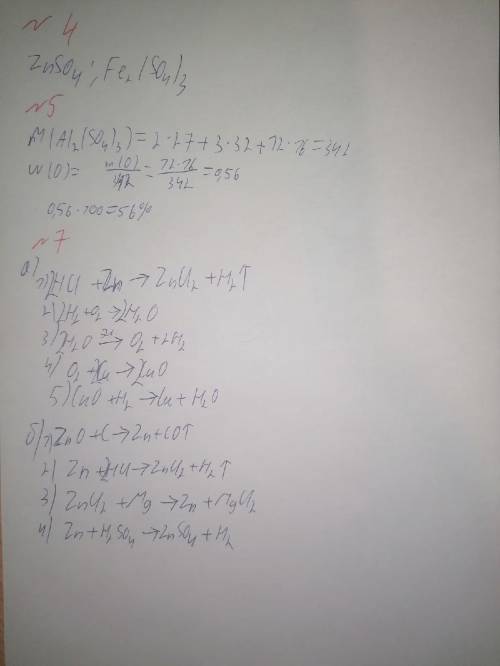 № 4
ZnSO4; Fe2(SO4)3
№5
M(Al2(SO4)3) = 2·27+3·32+12·16=342
W(O)= m(O)/342 = 12·16/342 =0,56
0,56·100=56%
№7
а) 1) 2HCl + Zn → ZnCl2 + H2↑
2) 2H2+O2→2H2O
3) 2H2O → O2 + 2H2
4) O2 + 2Cu → 2CuO
5) CuO + H2 → Cu + H2O
б) 1) ZnO + C → Zn + CO↑
2) Zn + 2HCl → ZnCl2 + H2↑
3) ZnCl2 + Mg → Zn + MgCl2
4) Zn + H2SO4 → ZnSO4 + H2